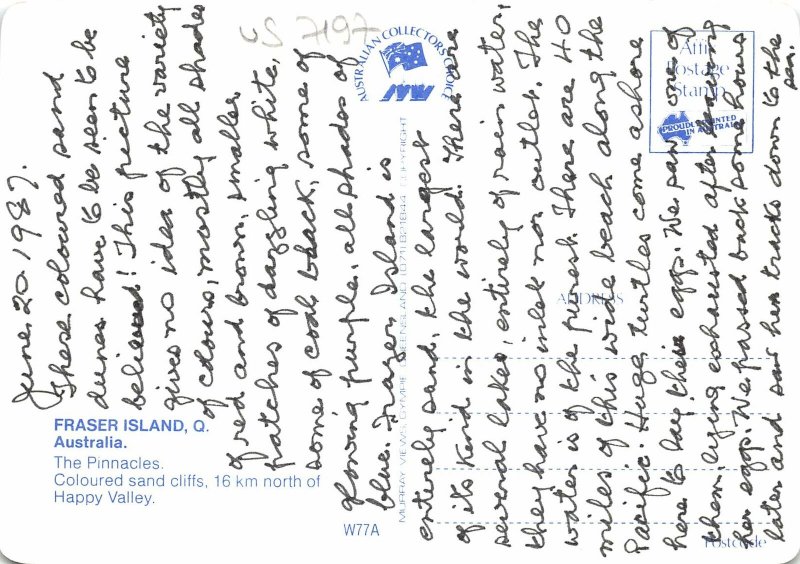 US 7197
June 20. 1987.
These coloured sand
dunes have to be seen to be
believed! This picture
gives no idea of the variety
of colours, mostly all shades
of red and brown, smaller
patches of dazzling white,
some of coal black, some of
glowing purple, all shades of
blue. Frazer Island is
entirely sand, the largest
of its kind in the world. There are
several lakes, entirely of rain water,
they have no inlet nor outlet. The
water is of the purest. There are 40
miles of this wide beach along the
Pacific. Huge turtles come ashore
here to lay their eggs. We saw one of
them, lying exhausted after leaving
her eggs. We passed back some hours
later and saw her tracks down to the
sea.
FRASER ISLAND, Q.
Australia.
The Pinnacles.
Coloured sand cliffs, 16 km north of
Happy Valley.
W77A
AUSTRALIAN COLLECTORS CHOICE
MURRAY VIEWS, GYMPIE, QUEENSLAND (071) 821844 COPYRIGHT
Affix
Postage
Stamp
PROUDLY PRINTED
IN AUSTRALIA
ADDRESS
Postcode